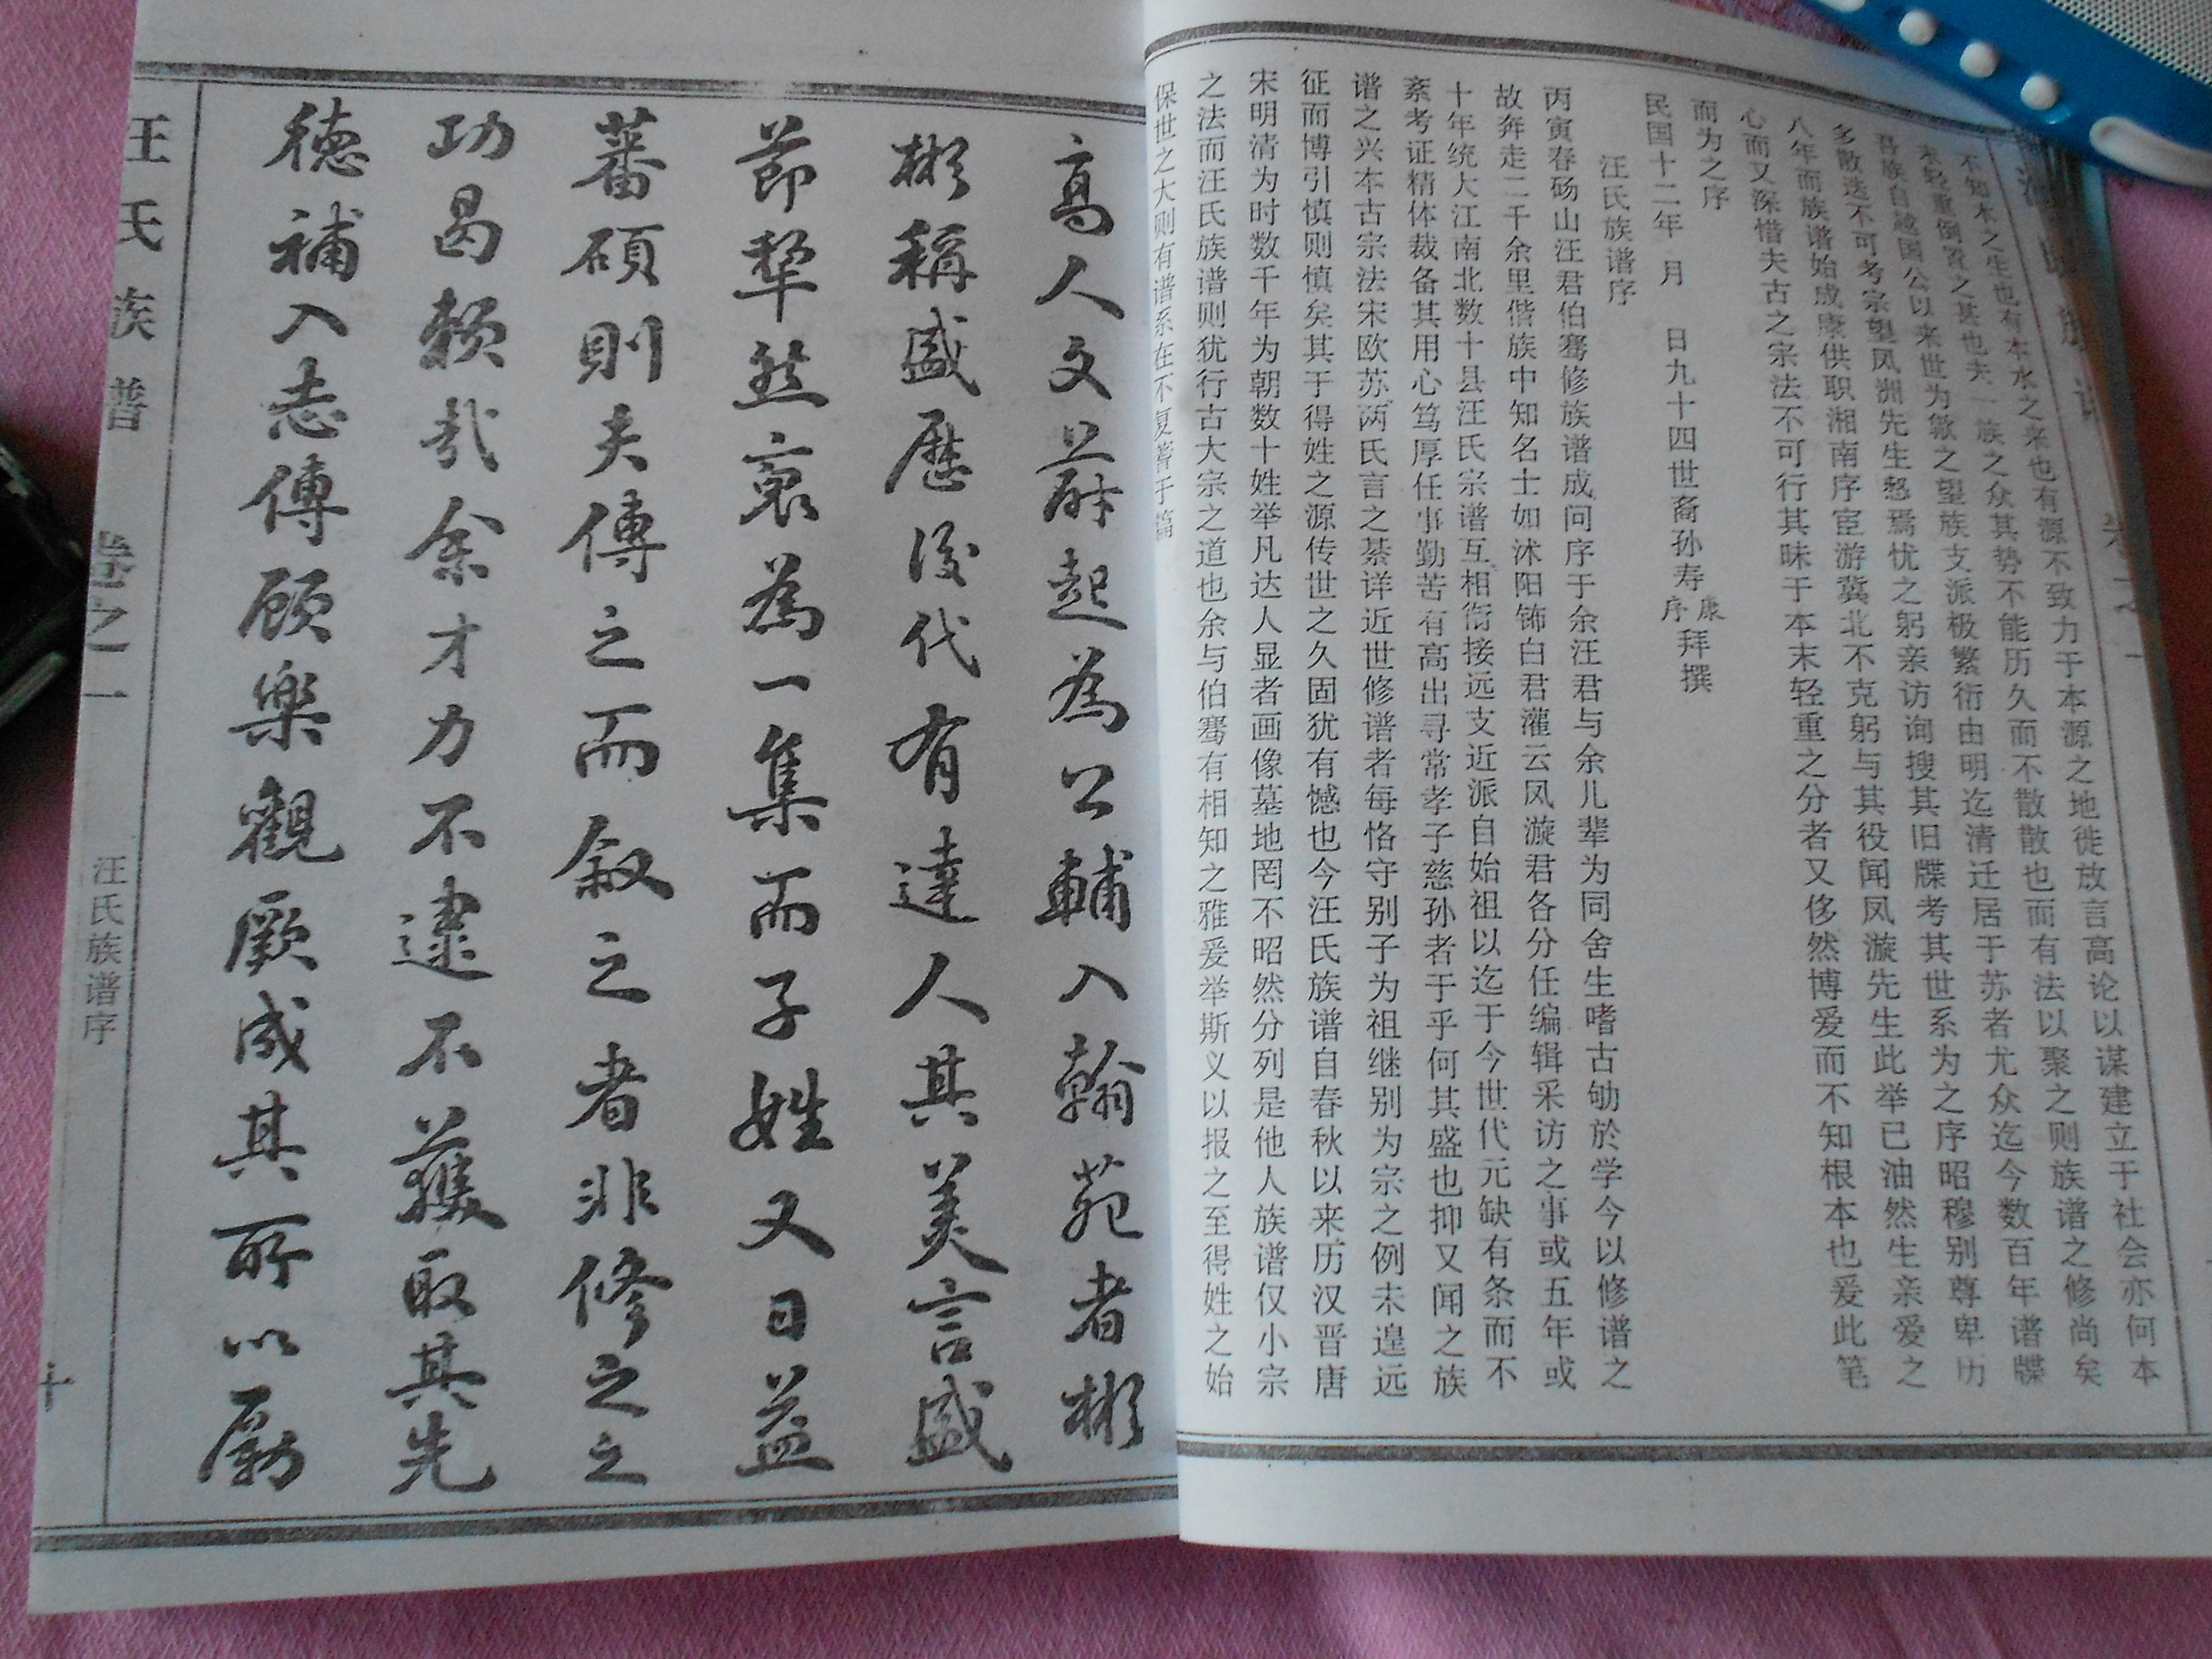 不知木之生也有本水之来也有源不致力于本源之地徙放言高论以谋建立于社会亦何本
末轻重倒置之甚也夫一族之众其势不能历久而不散散也而有法以聚之则族谱之修尚矣
吾族自越国公以来世为歙之望族支派极繁衍由明迄清迁居于苏者尤众迄今数百年谱牒
多散迭不可考宗望凤洲先生愁焉忧之躬亲访询搜其旧牒考其世系为之序昭穆别尊卑历
八年而族谱始成康供职湘南序宦游冀北不克躬与其役闻凤漩先生此举已油然生亲爱之
心而又深惜夫古之宗法不可行其昧于本末轻重之分者又侈然博爱而不知根本也爰此笔
而为之序
民国十二年 月 日九十四世裔孙寿康序拜撰
汪氏族谱序
丙寅春砀山汪君伯骞修族谱成问序于余汪君与余儿辈为同舍生嗜古劬於学今以修谱之
故奔走二千余里偕族中知名士如沭阳钸白君灌云凤漩君各分任编辑采访之事或五年或
十年统大江南北数十县汪氏宗谱互相衔接远支近派自始祖以迄于今世代元缺有条而不
紊考证精体裁备其用心笃厚任事勤苦有高出寻常孝子慈孙者于乎何其盛也抑又闻之族
谱之兴本古宗法宋欧苏两氏言之綦详近世修谱者每恪守别子为祖继别为宗之例未遑远
征而博引慎则慎矣其于得姓之源传世之久固犹有憾也今汪氏族谱自春秋以来历汉晋唐
宋明清为时数千年为朝数十姓举凡达人显者画像墓地罔不昭然分列是他人族谱仅小宗
之法而汪氏族谱则犹行古大宗之道也余与伯骞有相知之雅爰举斯义以报之至得姓之始
保世之大则有谱系在不复著于篇
高人文蔚起為公輔入翰苑者彬
彬稱盛歷後代有達人其美言盛
節犖然裒為一集而子姓又日益
蕃碩則夫傳之而叙之者非修之之
功曷賴哉余才力不逮不獲取其先
德補入志傳顧樂觀厥成其所以勵
汪氏族谱 卷之一 汪氏族谱序 十